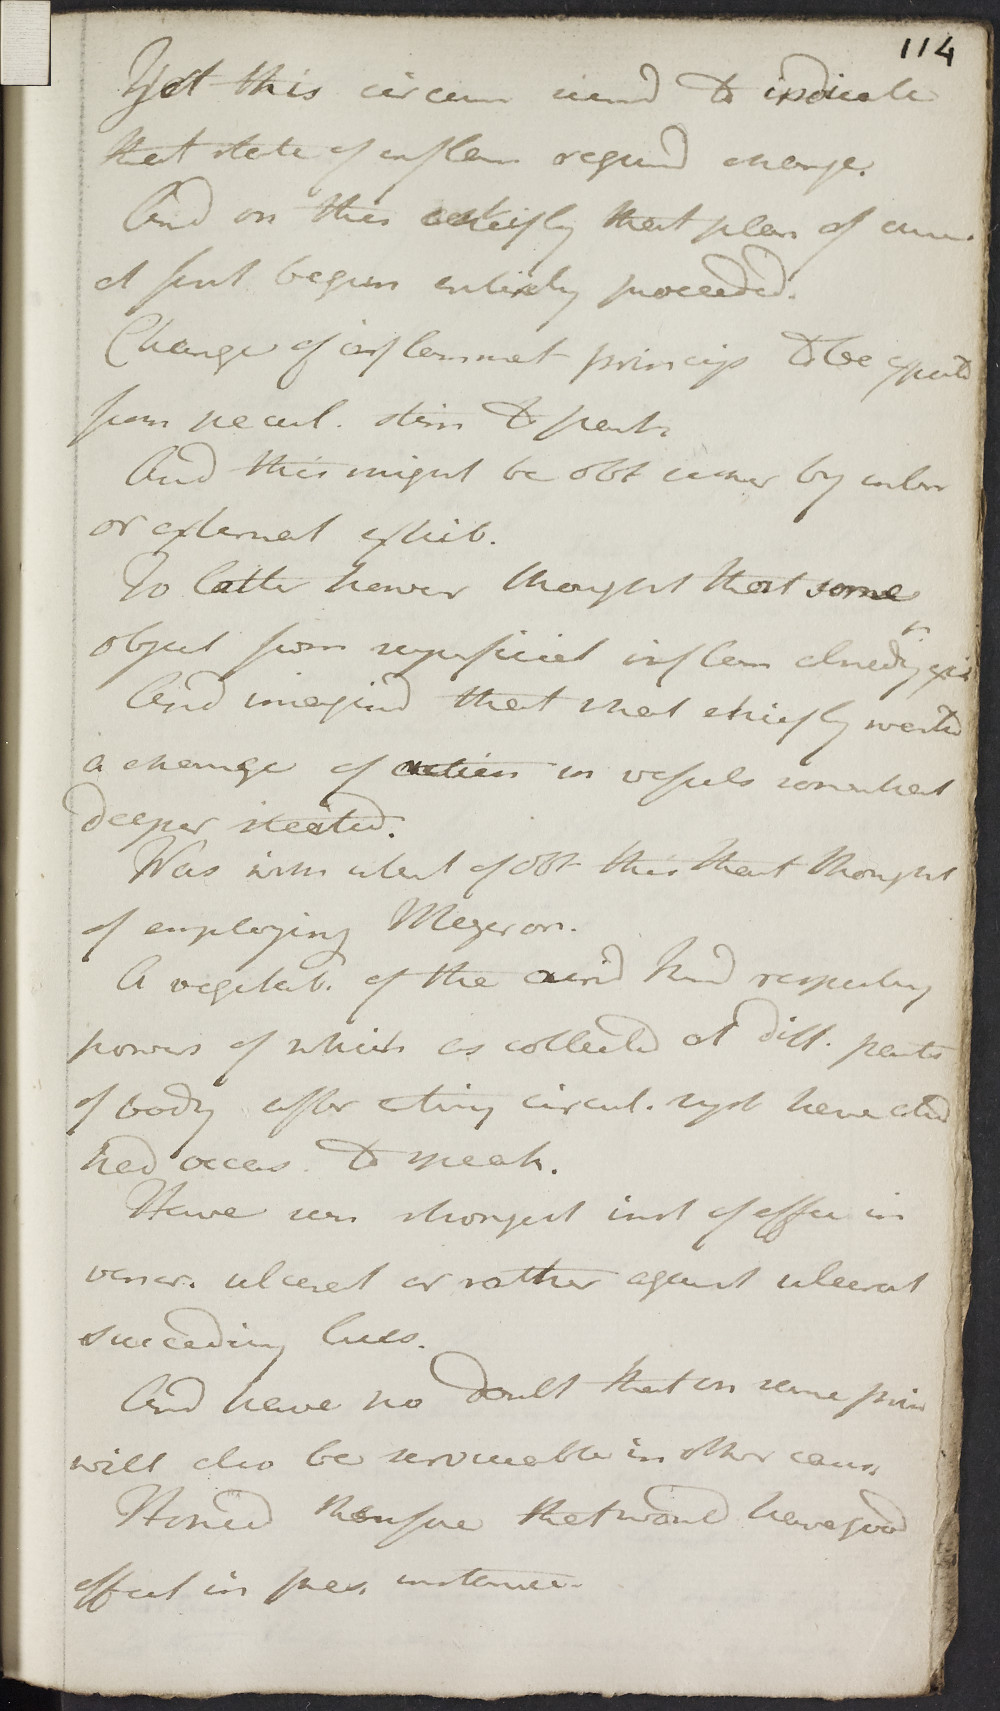 114
Yet this circum seemd to indicate
that state of inflam requird change.
And on this chiefly that plan of cure
at first begun entirely proceeded.
Change of inflammat princip to be expectd
from pecul. stim to part
And this might be obt either by intern
or external exhib.
To latter howev thought that some
object from superficial inflam already exis
And imagind that what chiefly wantd
a change of action in vessels somewhat
deeper seated.
Was with intent of obt this that thought
of employing Mezereon.
A vegetab. of the acrid kind respecting
powers of which as collected at diff. parts
of body after circul. syst have
had occas. to speak.
Have seen strongest inst of effec in
vener. ulcerat or rather against ulcerat
succeeding lues.
And have no doubt that on same prin
will also be serviceable in other cases
Hoped therefore that would have good
effect in pres. instance.